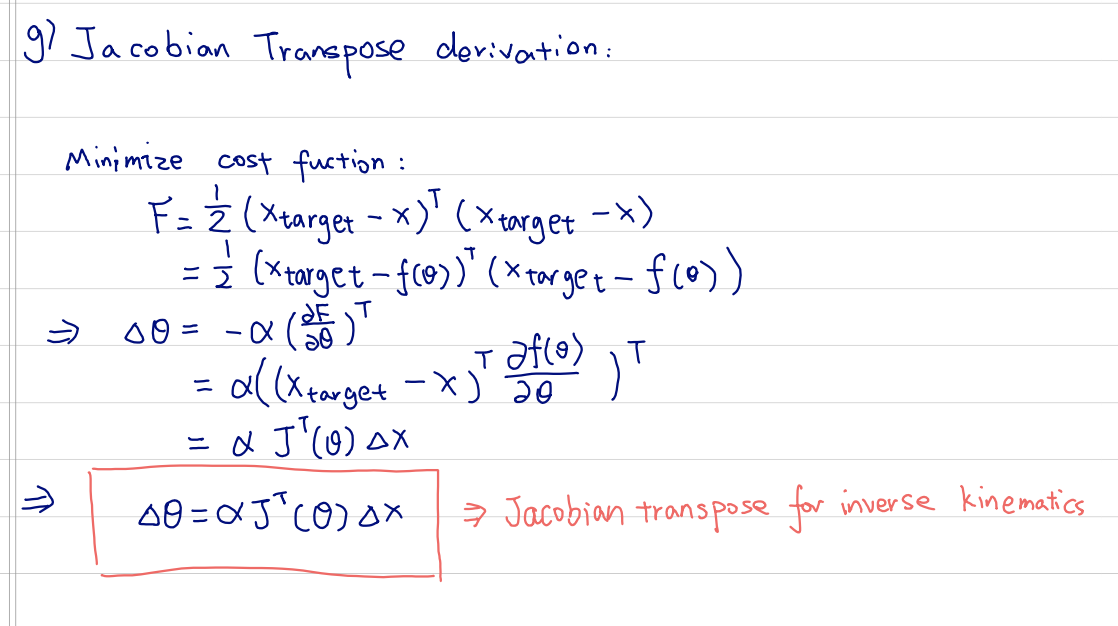 g) Jacobian Transpose derivation:
Minimize cost fuction:
F = 1/2 (x_target - x)^T (x_target - x)
= 1/2 (x_target - f(θ))^T (x_target - f(θ))
⇒ Δθ = -α (∂F/∂θ)^T
= α((x_target - x)^T ∂f(θ)/∂θ)^T
= α J^T(θ) Δx
⇒ Δθ = α J^T(θ) Δx ⇒ Jacobian transpose for inverse kinematics